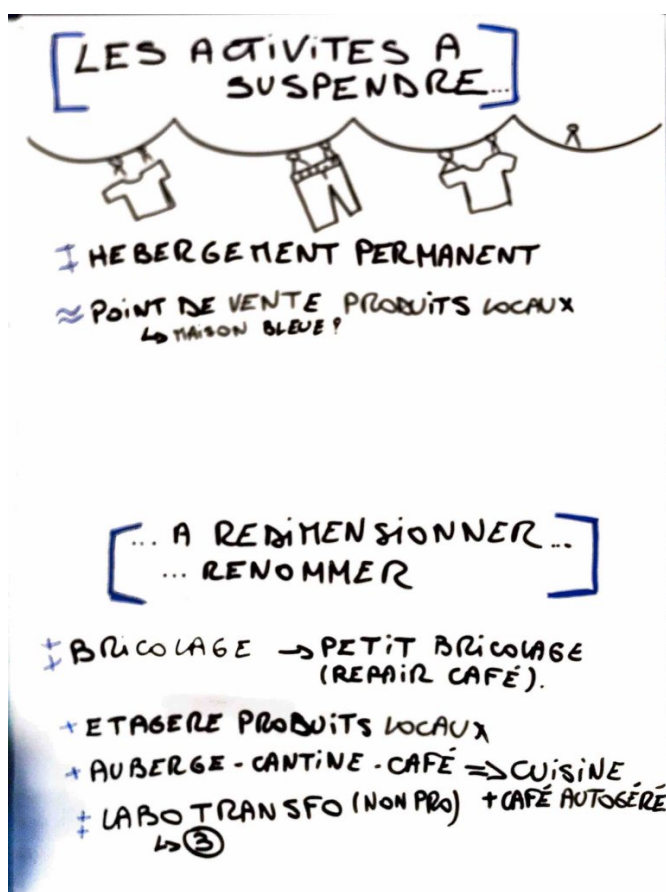 [LES ACTIVITES A
SUSPENDRE...]
HEBERGEMENT PERMANENT
≈ POINT DE VENTE PRODUITS LOCAUX
↳ MAISON BLEUE ?
[... A REDIMENSIONNER...
... RENOMMER]
++ BRICOLAGE → PETIT BRICOLAGE
(REPAIR CAFÉ).
+ ETAGERE PRODUITS LOCAUX
+ AUBERGE - CANTINE - CAFÉ => CUISINE
++ LABO TRANSFO (NON PRO) + CAFÉ AUTOGÉRÉ
↳ ③